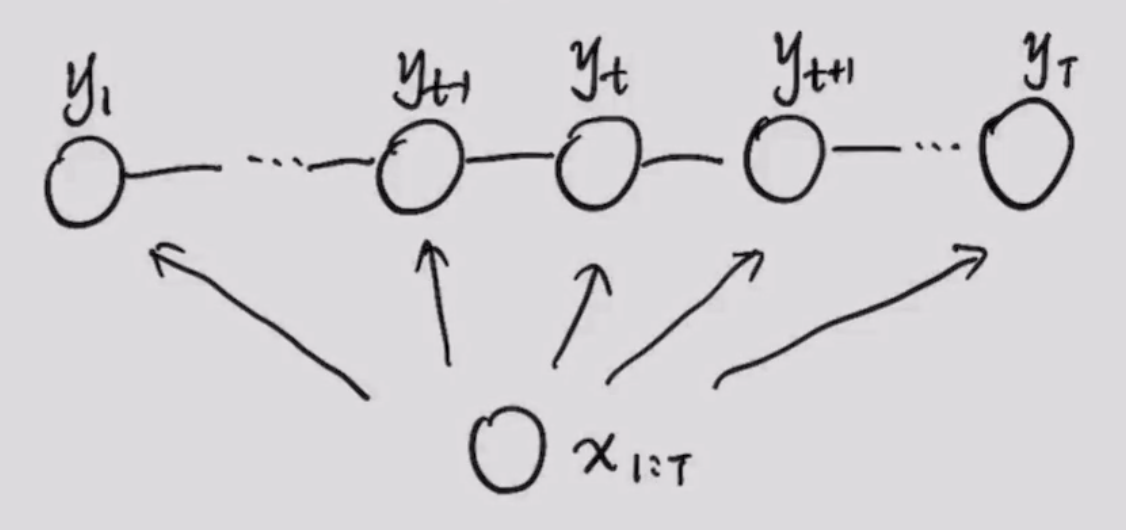 y₁ y_{t-1} y_t y_{t+1} y_T
... ...
x_{1:T}